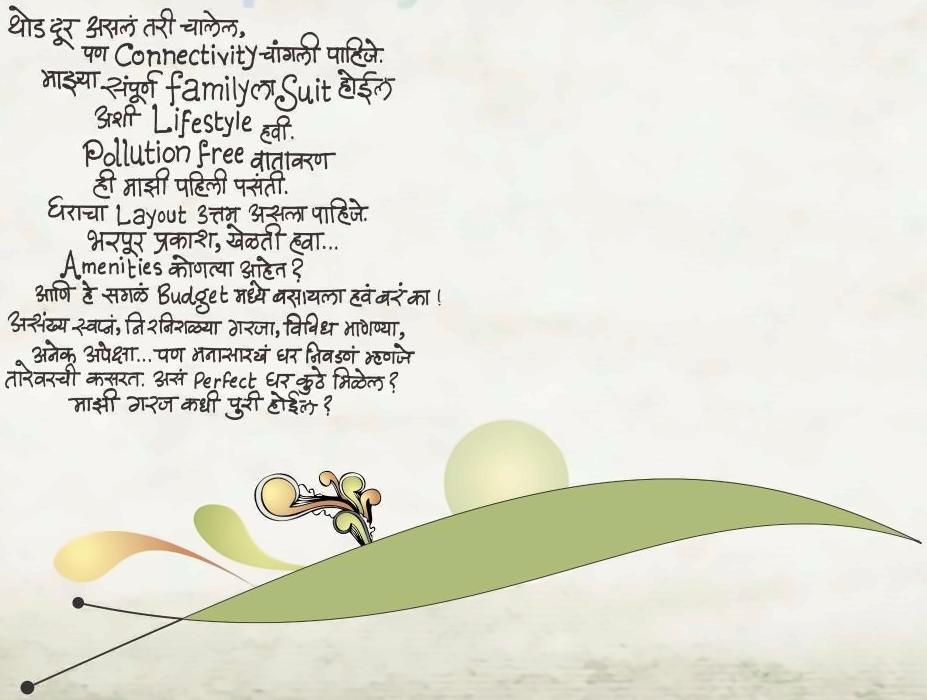 थोडं दूर असलं तरी चालेल,
पण Connectivity चांगली पाहिजे.
माझ्या संपूर्ण familyला Suit होईल
अशी Lifestyle हवी.
Pollution free वातावरण
ही माझी पहिली पसंती.
घराचा Layout उत्तम असला पाहिजे.
भरपूर प्रकाश, खेळती हवा...
Amenities कोणत्या आहेत?
आणि हे सगळं Budget मध्ये बसायला हवं बरं का!
असंख्य स्वप्नं, निरनिराळ्या गरजा, विविध मागण्या,
अनेक अपेक्षा... पण मनासारखं घर निवडणं म्हणजे
तारेवरची कसरत. असं Perfect घर कुठे मिळेल?
माझी गरज कधी पुरी होईल?